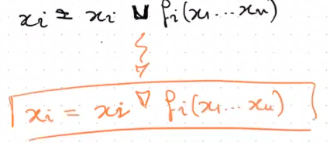 xi = xi ⊔ fi(x1...xn)
xi = xi ∇ fi(x1...xn)